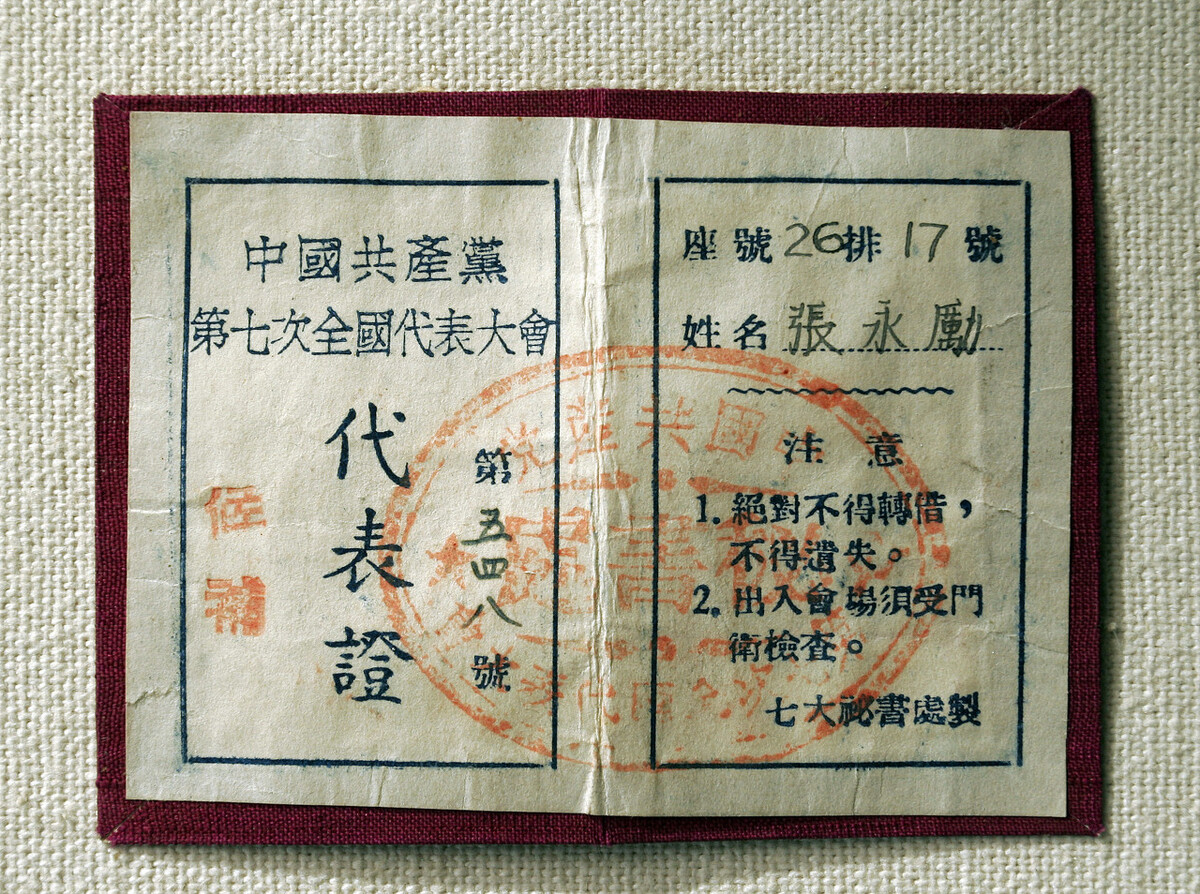 中國共產黨
第七次全國代表大會
代表證
第五四八號
候補
座號26排17號
姓名張永勵
注意
1. 絕對不得轉借，
不得遺失。
2. 出入會場須受門
衛檢查。
七大祕書處製